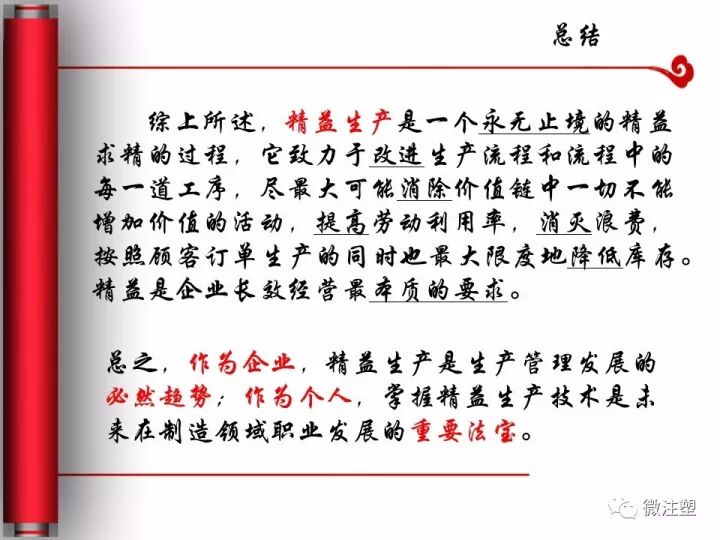 总结
综上所述，精益生产是一个永无止境的精益
求精的过程，它致力于改进生产流程和流程中的
每一道工序，尽最大可能消除价值链中一切不能
增加价值的活动，提高劳动利用率，消灭浪费，
按照顾客订单生产的同时也最大限度地降低库存。
精益是企业长效经营最本质的要求。
总之，作为企业，精益生产是生产管理发展的
必然趋势；作为个人，掌握精益生产技术是未
来在制造领域职业发展的重要法宝。
微注塑